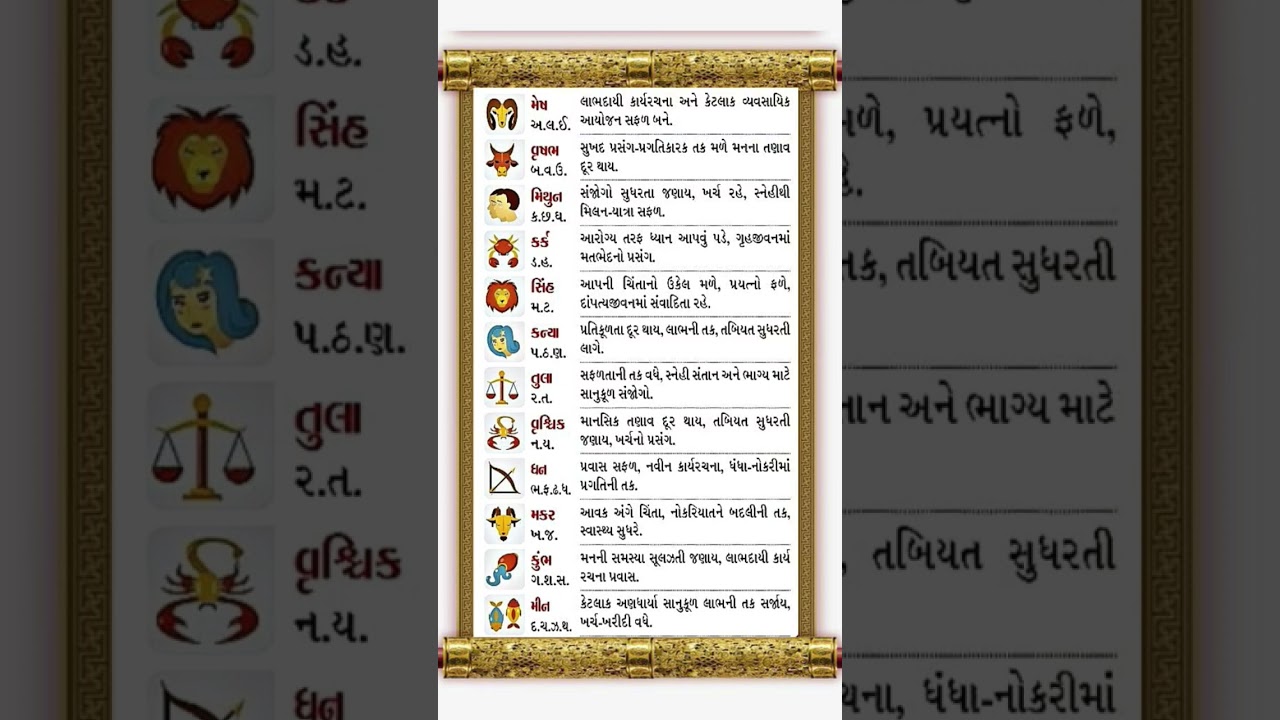 મેષ
અ.લ.ઈ.
લાભદાયી કાર્યરચના અને કેટલાક વ્યવસાયિક
આયોજન સફળ બને.
વૃષભ
બ.વ.ઉ.
સુખદ પ્રસંગ-પ્રગતિકારક તક મળે મનના તણાવ
દૂર થાય.
મિથુન
ક.છ.ઘ.
સંજોગો સુધરતા જણાય, ખર્ચ રહે, સ્નેહીથી
મિલન-યાત્રા સફળ.
કર્ક
ડ.હ.
આરોગ્ય તરફ ધ્યાન આપવું પડે, ગૃહજીવનમાં
મતભેદનો પ્રસંગ.
સિંહ
મ.ટ.
આપની ચિંતાનો ઉકેલ મળે, પ્રયત્નો ફળે,
દાંપત્યજીવનમાં સંવાદિતા રહે.
કન્યા
પ.ઠ.ણ.
પ્રતિકૂળતા દૂર થાય, લાભની તક, તબિયત સુધરતી
લાગે.
તુલા
ર.ત.
સફળતાની તક વધે, સ્નેહી સંતાન અને ભાગ્ય માટે
સાનુકૂળ સંજોગો.
વૃશ્ચિક
ન.ય.
માનસિક તણાવ દૂર થાય, તબિયત સુધરતી
જણાય, ખર્ચનો પ્રસંગ.
ધન
ભ.ફ.ઢ.ધ.
પ્રવાસ સફળ, નવીન કાર્યરચના, ધંધા-નોકરીમાં
પ્રગતિની તક.
મકર
ખ.જ.
આવક અંગે ચિંતા, નોકરિયાતને બદલીની તક,
સ્વાસ્થ્ય સુધરે.
કુંભ
ગ.શ.સ.
મનની સમસ્યા સૂલઝતી જણાય, લાભદાયી કાર્ય
રચના પ્રવાસ.
મીન
દ.ચ.ઝ.થ.
કેટલાક અણધાર્યા સાનુકૂળ લાભની તક સર્જાય,
ખર્ચ-ખરીદી વધે.
ડ.હ.
સિંહ
મ.ટ.
કન્યા
પ.ઠ.ણ.
તુલા
ર.ત.
વૃશ્ચિક
ન.ય.
ધન
પ્રયત્નો ફળે,
તક, તબિયત સુધરતી
અને ભાગ્ય માટે
તબિયત સુધરતી
ધંધા-નોકરીમાં